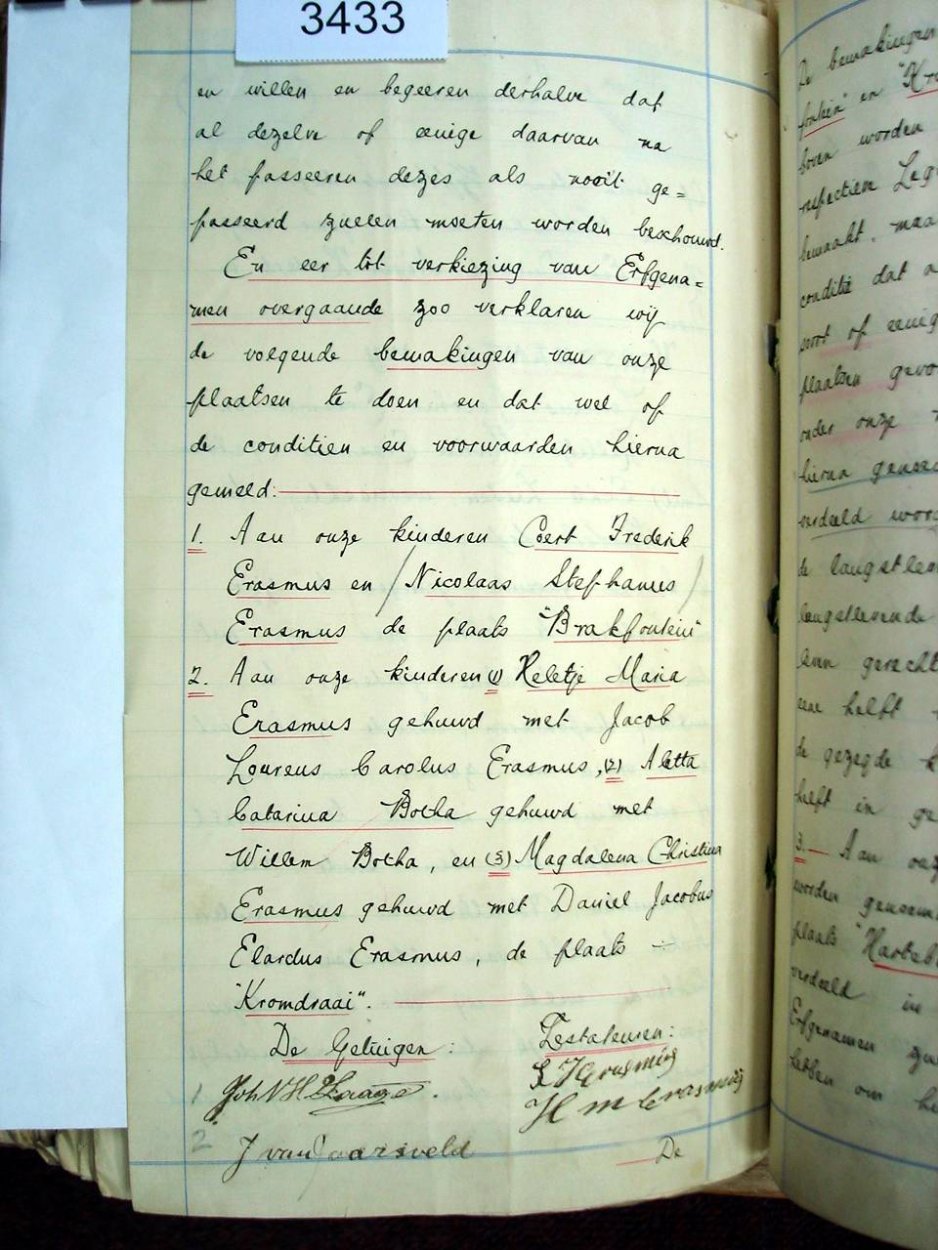 3433
en willen en begeeren derhalve dat
al dezelve of eenige daarvan na
het passeeren dezes als nooit ge=
passeerd zullen moeten worden beschouwd.
En eer tot verkiezing van Erfgena=
men overgaande zoo verklaren wij
de volgende bemakingen van onze
plaatsen te doen en dat wel of
de conditien en voorwaarden hierna
gemeld:
1. Aan onze kinderen Coert Frederik
Erasmus en (Nicolaas Stephanus)
Erasmus de plaats "Brakfontein"
2. Aan onze kinderen (1) Heletje Maria
Erasmus gehuwd met Jacob
Lourens Carolus Erasmus, (2) Aletta
Catarina Botha gehuwd met
Willem Botha, en (3) Magdalena Christina
Erasmus gehuwd met Daniel Jacobus
Elardus Erasmus, de plaats
"Kromdraai".
De Getuigen: Testateuren:
1 Joh
H M Erasmus
2 J van Jaarsveld
De
De bemakingen
fontein" en "Kro
boven worden
respectieve Leg
bemaakt, maa
conditie dat a
soort of eenig
plaatsen gevo
onder onze
hierna genoem
verdeeld word
de langstlev
langstlevende
leven gerecht
eene helft
de gezegde k
helft in ge
3. Aan onz
worden genoem
plaats "Hartebe
verdeeld in
Erfgenamen zu
hebben om he